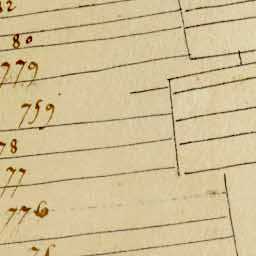 80
779
759
78
77
776